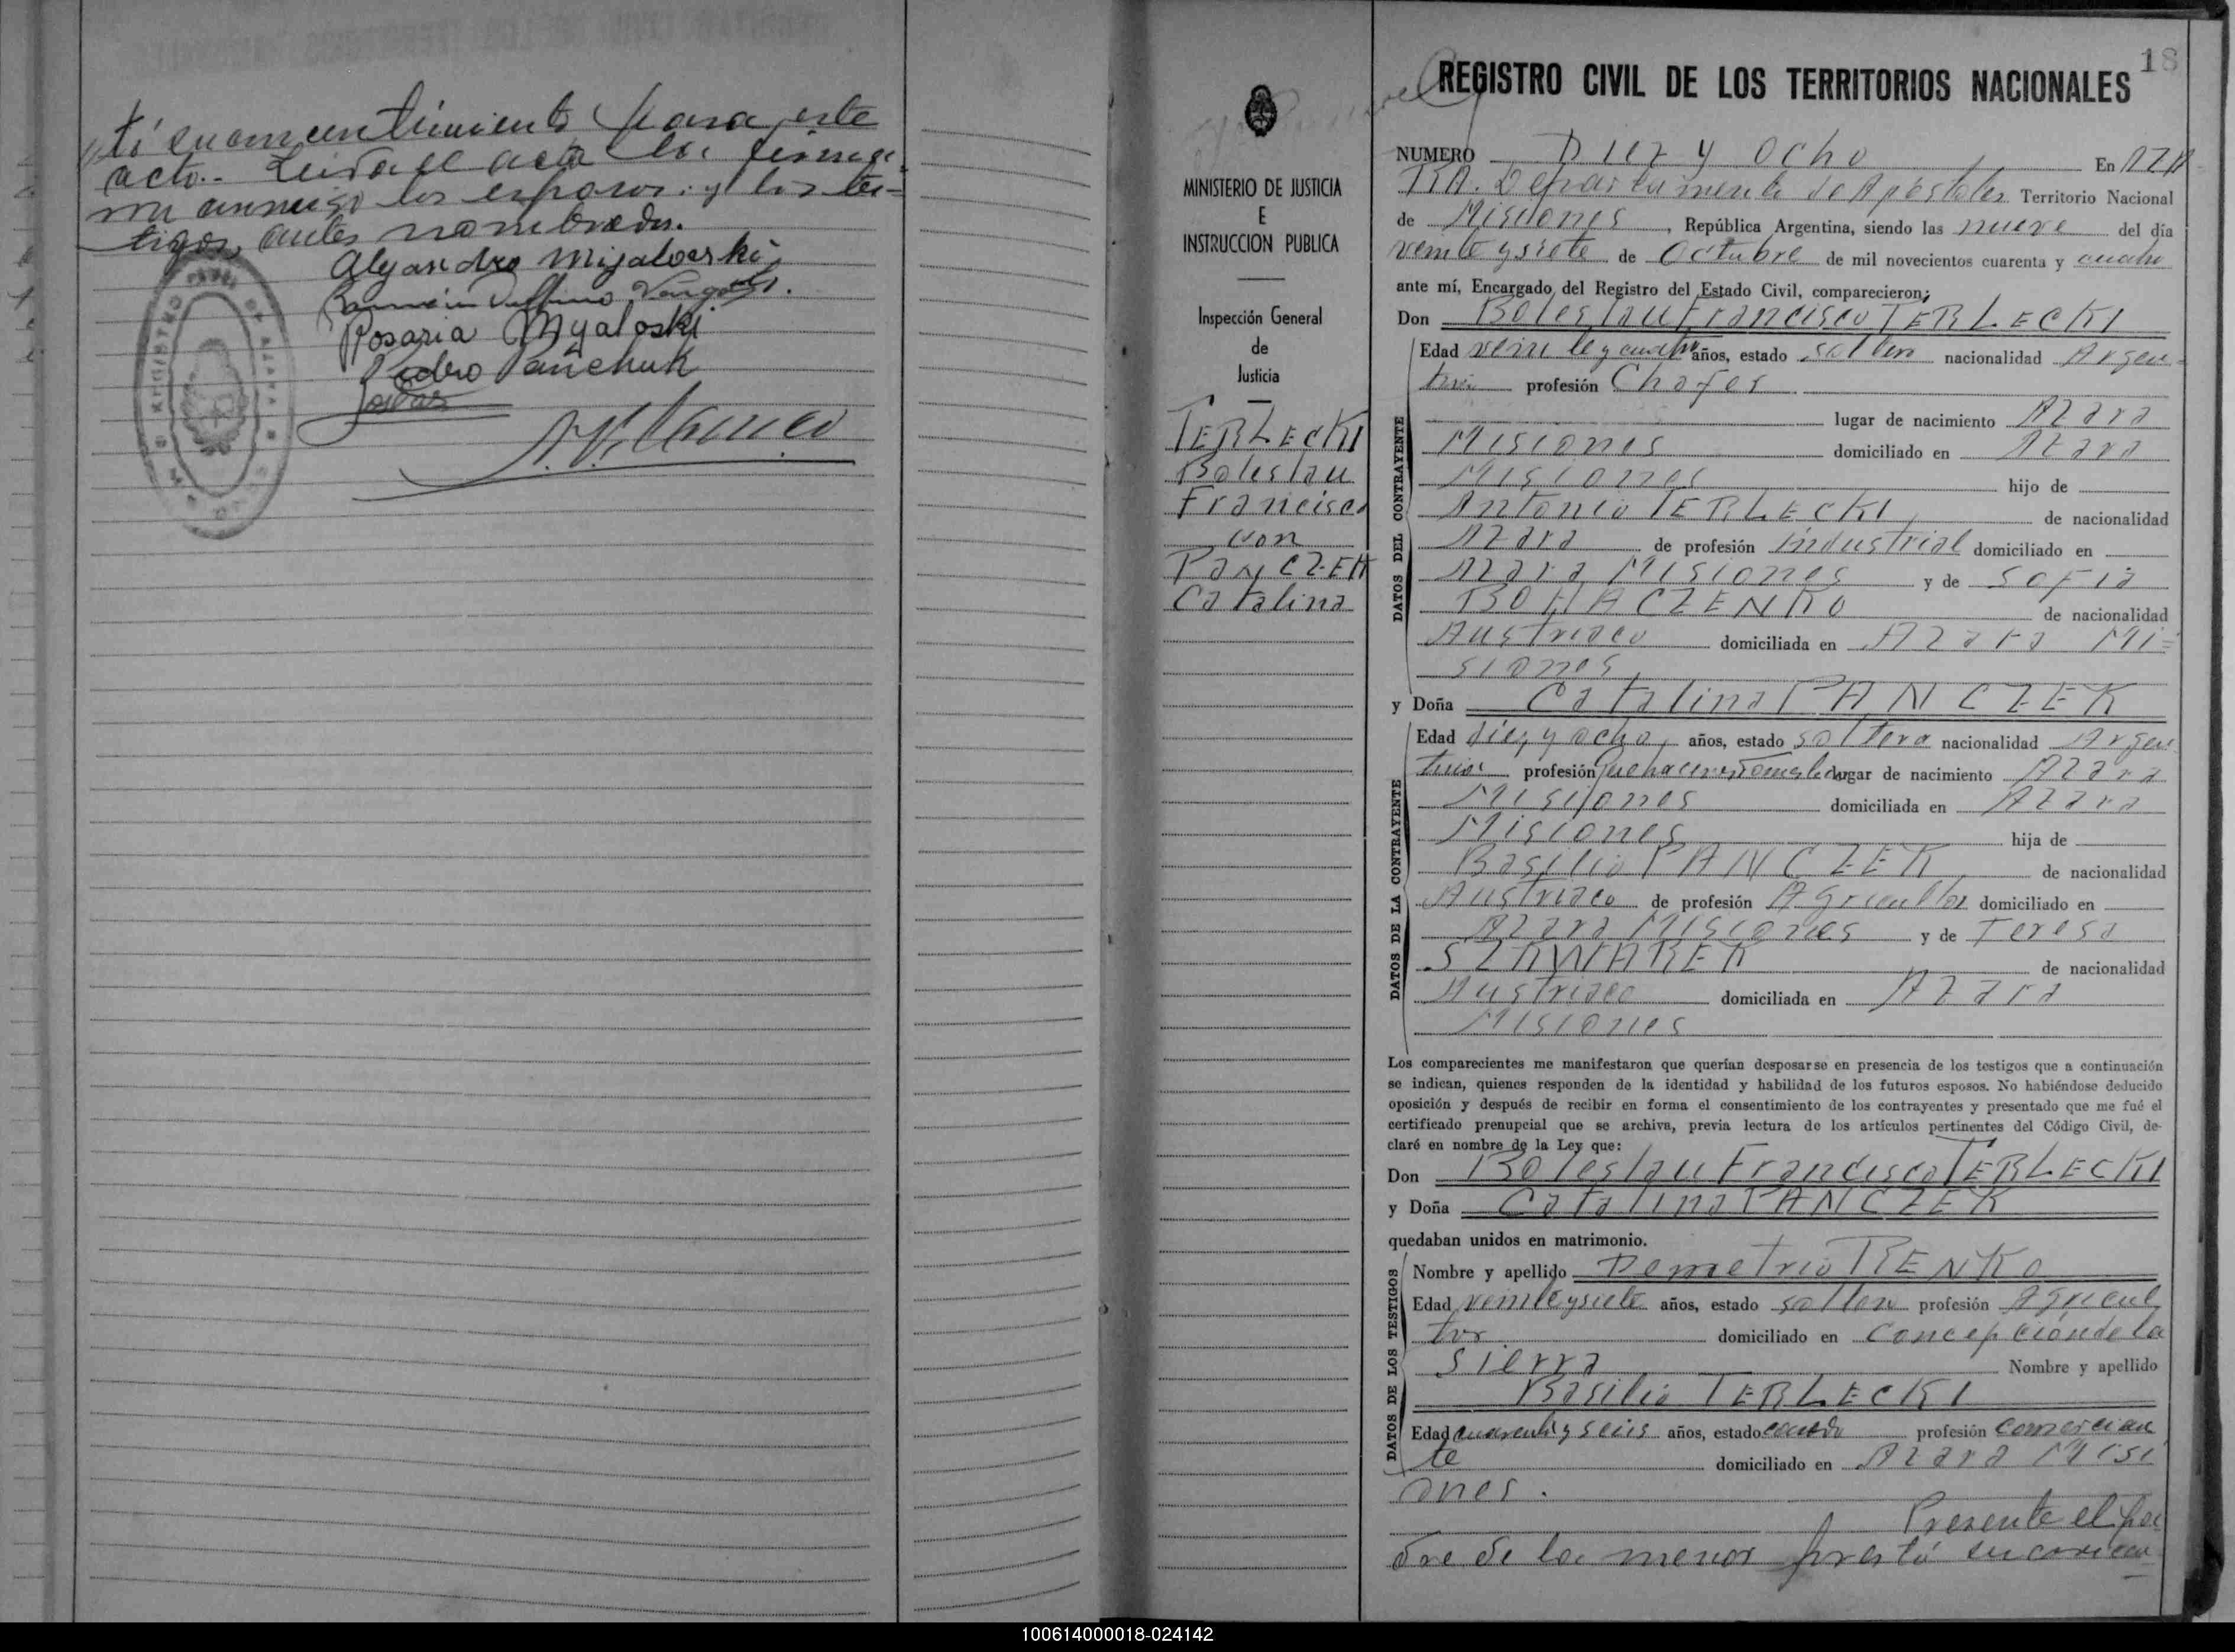 tó su consentimiento para este
acto.- Leida el acta la firma-
ron conmigo los esposos y los tes=
tigos, antes nombrados.
Alejandro Mijaloski
Rosaria Myaloski
Pedro Pañchuk
18
REGISTRO CIVIL DE LOS TERRITORIOS NACIONALES
MINISTERIO DE JUSTICIA
E
INSTRUCCION PUBLICA
Inspección General
de
Justicia
TERLECKI
Boleslau
Francisco
con
PANCZEK
Catalina
NUMERO Diez y Ocho En AZA
RA. Departamento de Apóstoles Territorio Nacional
de Misiones, República Argentina, siendo las nueve del día
veinte y siete de Octubre de mil novecientos cuarenta y cuatro
ante mí, Encargado del Registro del Estado Civil, comparecieron;
Don Boleslau Francisco TERLECKI
DATOS DEL CONTRAYENTE
Edad veinte y cuatro años, estado soltero nacionalidad Argen=
tina profesión Chofer
lugar de nacimiento Azara
Misiones domiciliado en Azara
Misiones hijo de
Antonio TERLECKI, de nacionalidad
Azara de profesión industrial domiciliado en
Azara Misiones y de Sofia
BOHACZENKO de nacionalidad
Austriaco domiciliada en Azara Mi=
siones
y Doña Catalina PANCZEK
DATOS DE LA CONTRAYENTE
Edad diez y ocho, años, estado soltera nacionalidad Argen
tina profesión Quehaceres Domest. lugar de nacimiento Azara
Misiones domiciliada en Azara
Misiones hija de
Basilio PANCZEK, de nacionalidad
Austriaco de profesión Agricultor domiciliado en
Azara Misiones y de Teresa
SZKWAREK de nacionalidad
Austriaco domiciliada en Azara
Misiones
Los comparecientes me manifestaron que querían desposarse en presencia de los testigos que a continuación
se indican, quienes responden de la identidad y habilidad de los futuros esposos. No habiéndose deducido
oposición y después de recibir en forma el consentimiento de los contrayentes y presentado que me fué el
certificado prenupcial que se archiva, previa lectura de los artículos pertinentes del Código Civil, de-
claré en nombre de la Ley que:
Don Boleslau Francisco TERLECKI
y Doña Catalina PANCZEK
quedaban unidos en matrimonio.
DATOS DE LOS TESTIGOS
Nombre y apellido Demetrio RENKO
Edad veinte y siete años, estado soltero profesión Agricul
tor domiciliado en Concepción de la
Sierra Nombre y apellido
Basilio TERLECKI
Edad cuarenta y seis años, estado casado profesión comercian
te domiciliado en Azara Misi
ones.
Presente el pa
dre de la menor prestó su consen
100614000018-024142